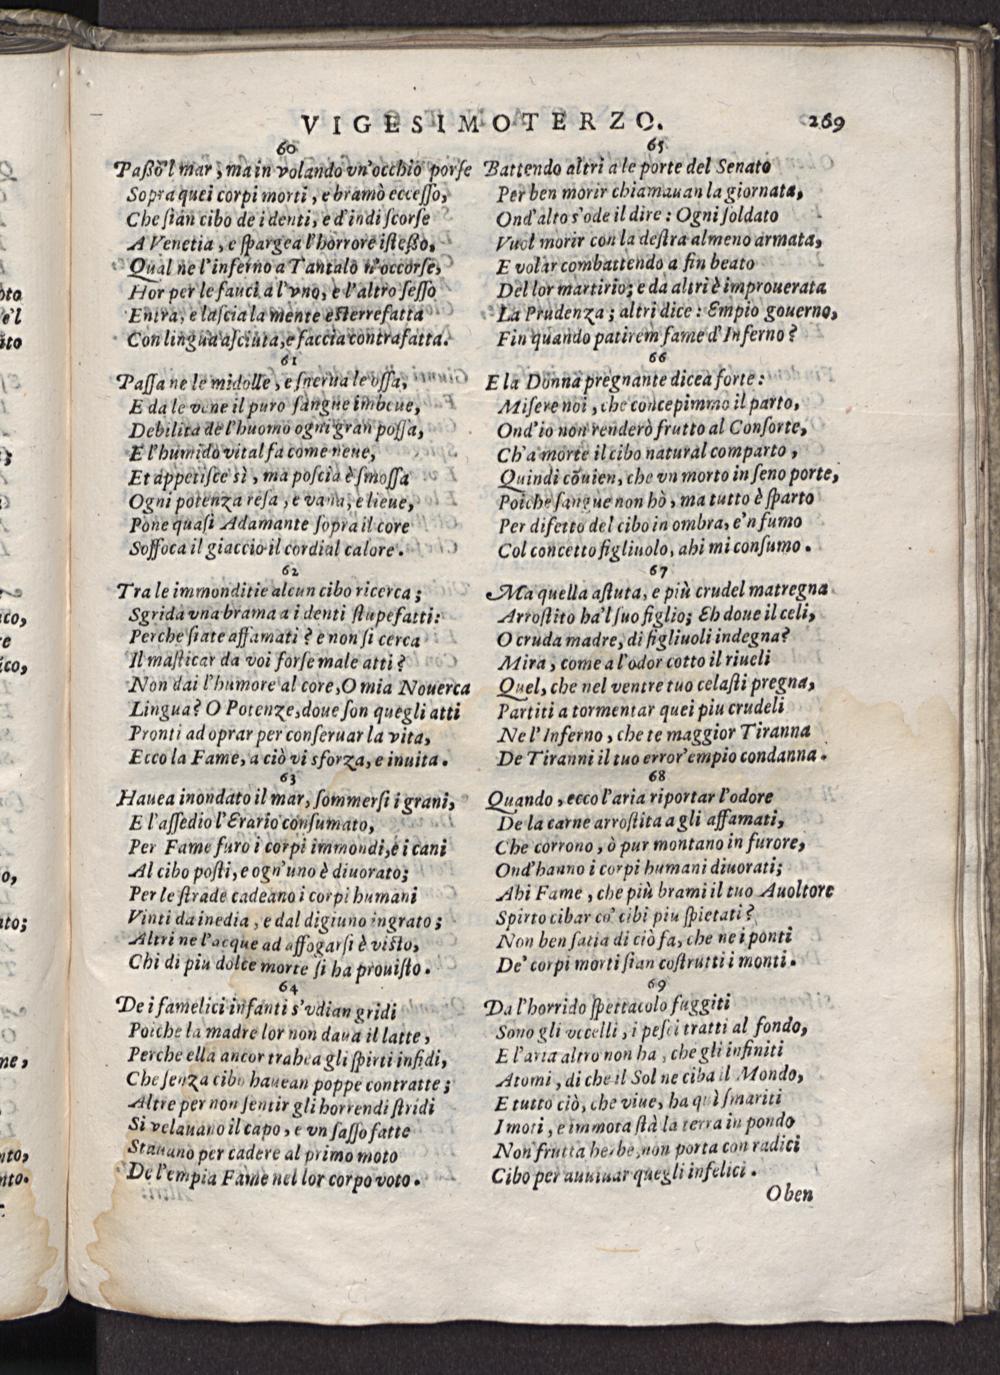 VIGESIMOTERZO. 269
60
Paßò'l mar, ma in volando vn'occhio porse
Sopra quei corpi morti, e bramò eccesso,
Che sian cibo de i denti, e d'indi scorse
A Venetia, e sparge a l'horrore isteßo,
Qual ne l'inferno a Tantalo n'occorse,
Hor per le fauci a l'vno, e l'altro sesso
Entra, e lascia la mente esterrefatta
Con lingua asciuta, e faccia contrafatta.
61
Passa ne le midolle, e snerua le ossa,
E da le vene il puro sangue imbeue,
Debilita de l'huomo ogni gran possa,
E l'humido vital fa come neue,
Et appetisce sì, ma poscia è smossa
Ogni potenza resa, e vana, e lieue,
Pone quasi Adamante sopra il core
Soffoca il giaccio il cordial calore.
62
Tra le immonditie alcun cibo ricerca;
Sgrida vna brama a i denti stupefatti:
Perche siate affamati? e non si cerca
Il masticar da voi forse male atti?
Non dai l'humore al core, O mia Nouerca
Lingua? O Potenze, doue son quegli atti
Pronti ad oprar per conseruar la vita,
Ecco la Fame, a ciò vi sforza, e inuita.
63
Hauea inondato il mar, sommersi i grani,
E l'assedio l'Erario consumato,
Per Fame furo i corpi immondi, e i cani
Al cibo posti, e ogn'uno è diuorato;
Per le strade cadeano i corpi humani
Vinti da inedia, e dal digiuno ingrato;
Altri ne l'acque ad affogarsi è visto,
Chi di piu dolce morte si ha prouisto.
64
De i famelici infanti s'vdian gridi
Poiche la madre lor non daua il latte,
Perche ella ancor trahea gli spirti infidi,
Che senza cibo hauean poppe contratte;
Altre per non sentir gli horrendi stridi
Si velauano il capo, e vn sasso fatte
Stauano per cadere al primo moto
De l'empia Fame nel lor corpo voto.
65
Battendo altri a le porte del Senato
Per ben morir chiamauan la giornata,
Ond'alto s'ode il dire: Ogni soldato
Vuol morir con la destra almeno armata,
E volar combattendo a fin beato
Del lor martirio; e da altri è improuerata
La Prudenza; altri dice: Empio gouerno,
Fin quando patirem fame d'Inferno?
66
E la Donna pregnante dicea forte:
Misere noi, che concepimmo il parto,
Ond'io non renderò frutto al Consorte,
Ch'a morte il cibo natural comparto,
Quindi cōuien, che vn morto in seno porte,
Poiche sangue non hò, ma tutto è sparto
Per difetto del cibo in ombra, e'n fumo
Col concetto figliuolo, ahi mi consumo.
67
Ma quella astuta, e più crudel matregna
Arrostito ha'l suo figlio; Eh doue il celi,
O cruda madre, di figliuoli indegna?
Mira, come a l'odor cotto il riueli
Quel, che nel ventre tuo celasti pregna,
Partiti a tormentar quei piu crudeli
Ne l'Inferno, che te maggior Tiranna
De Tiranni il tuo error' empio condanna.
68
Quando, ecco l'aria riportar l'odore
De la carne arrostita a gli affamati,
Che corrono, ò pur montano in furore,
Ond'hanno i corpi humani diuorati;
Ahi Fame, che più brami il tuo Auoltore
Spirto cibar co' cibi piu spietati?
Non ben satia di ciò fa, che ne i ponti
De' corpi morti sian costrutti i monti.
69
Da l'horrido spettacolo fuggiti
Sono gli vccelli, i pesci tratti al fondo,
E l'aria altro non ha, che gli infiniti
Atomi, di che il Sol ne ciba il Mondo,
E tutto ciò, che viue, ha quì smariti
I moti, e immota stà la terra in pondo
Non frutta herbe, non porta con radici
Cibo per auuiuar quegli infelici.
O ben